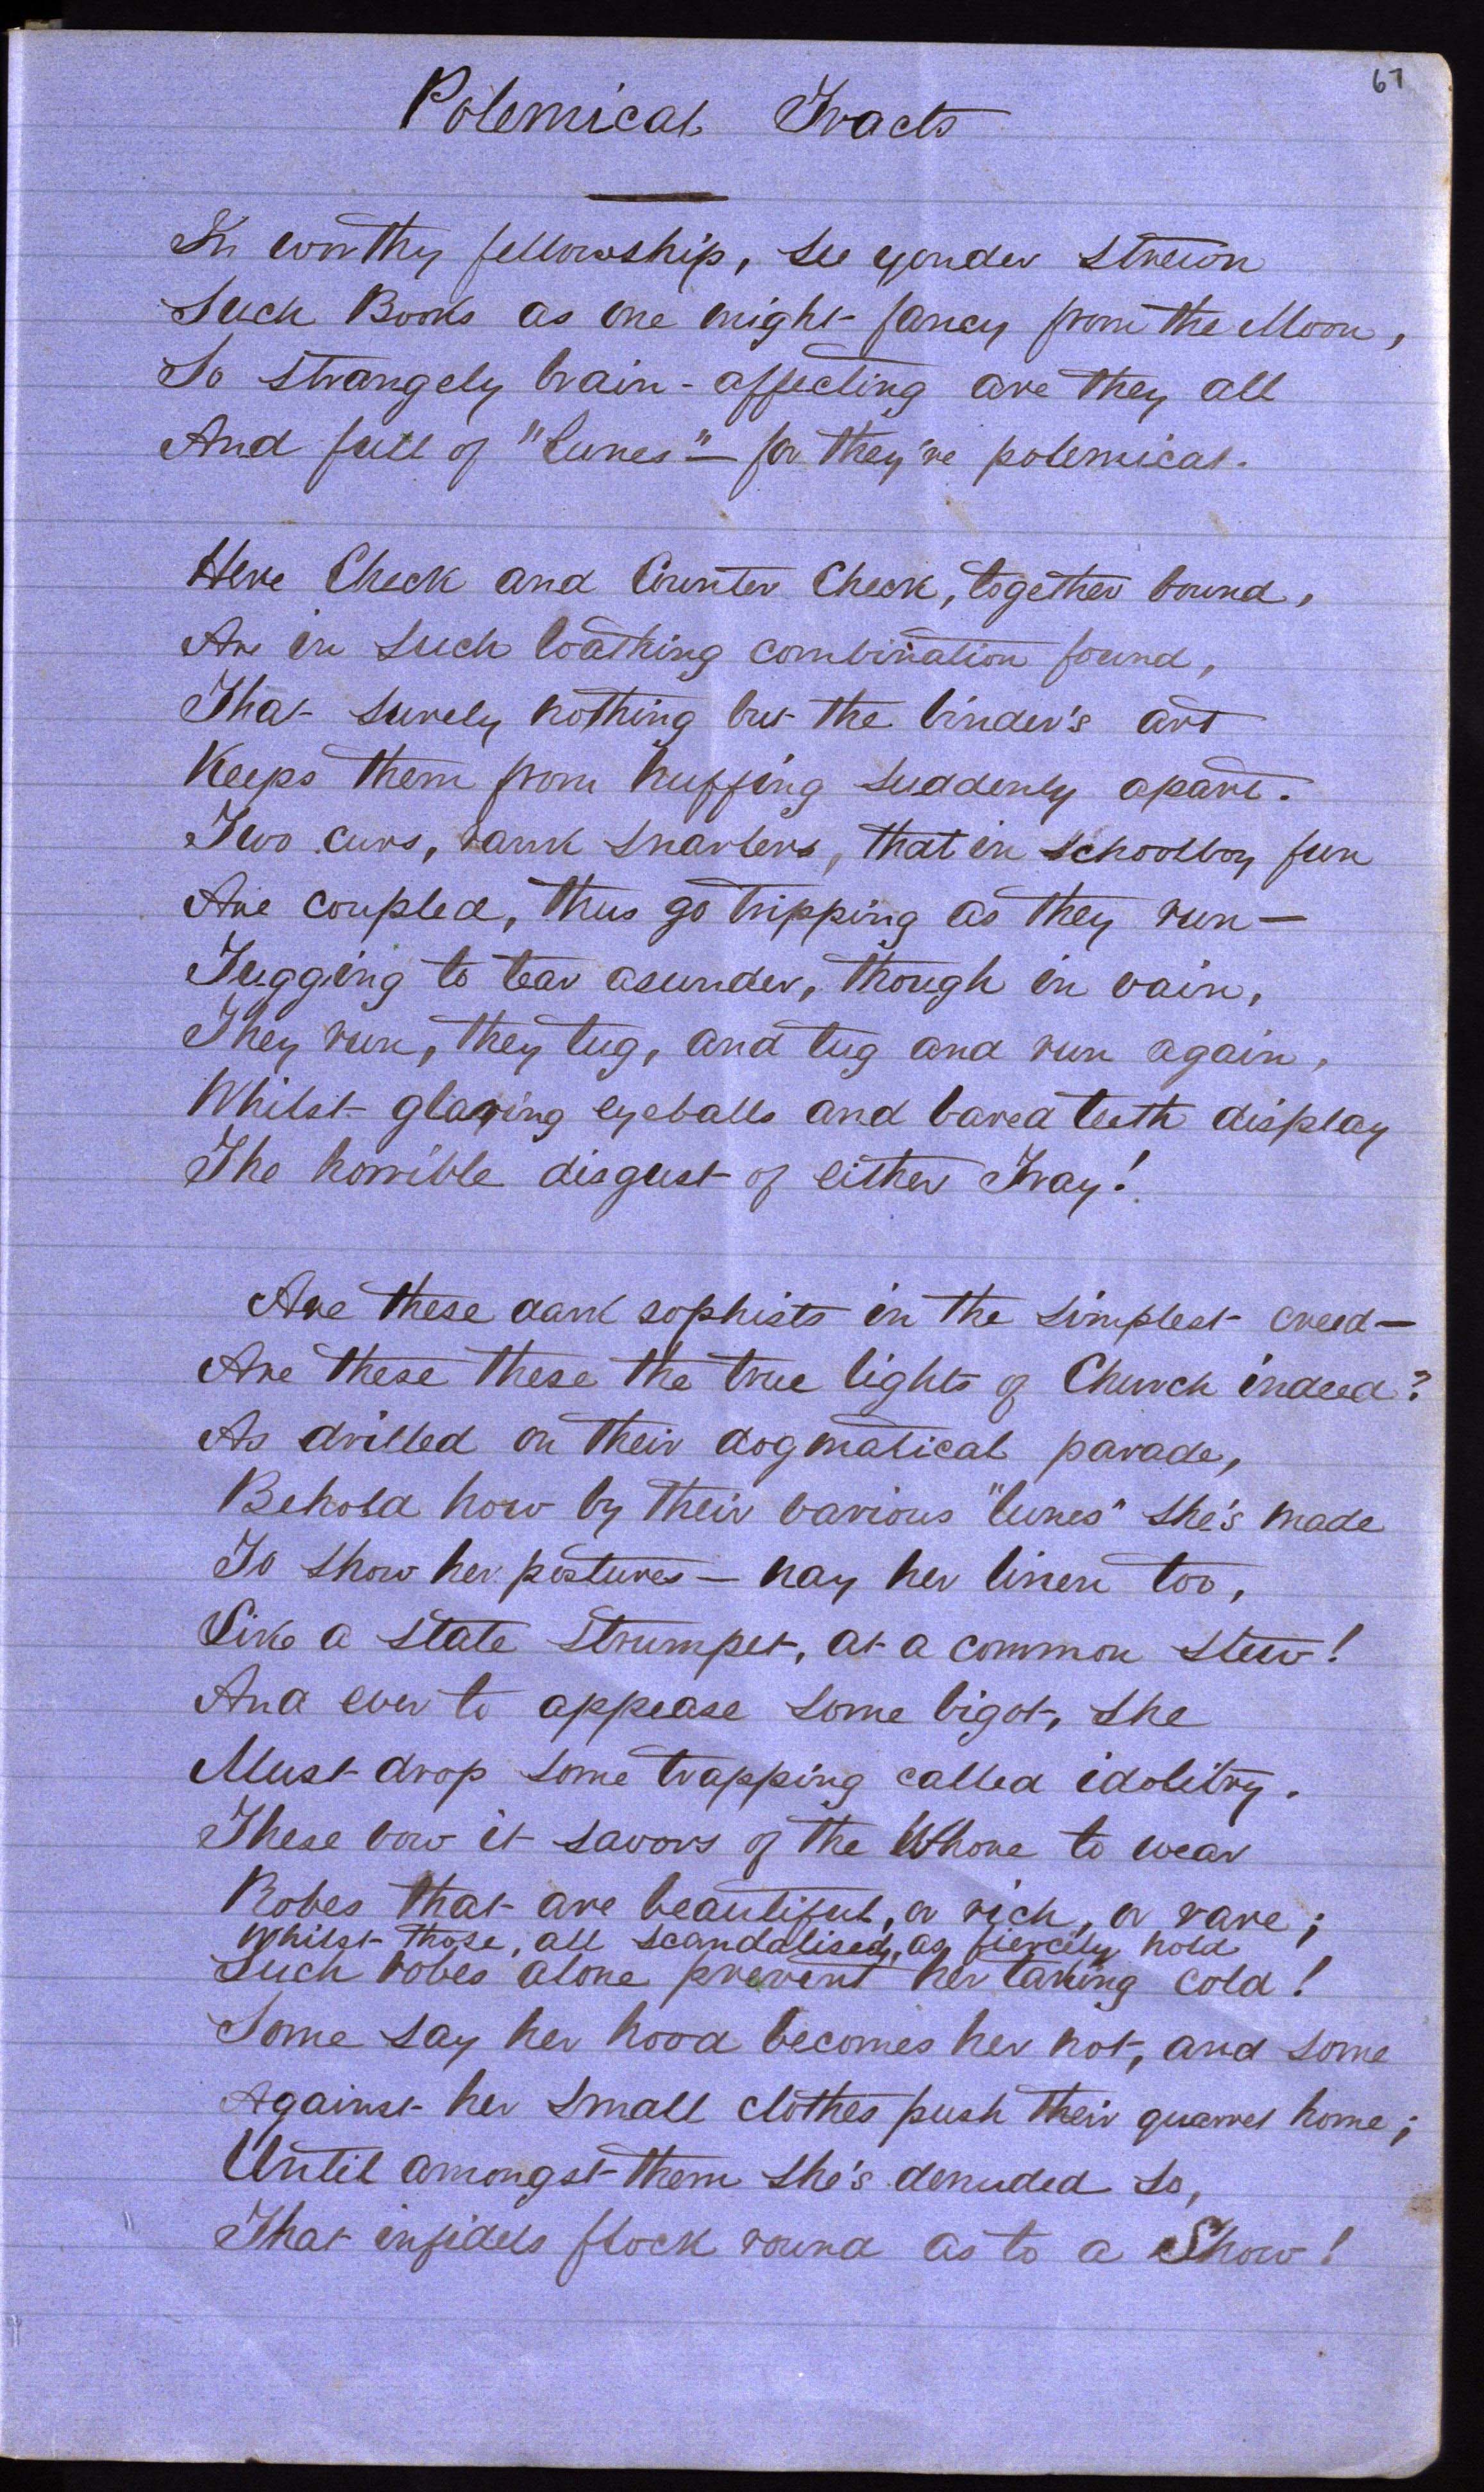 67
Polemical Tracts
In worthy fellowship, see yonder strewn
Such Books as one might fancy from the Moon,
So strangely brain-affecting are they all
And full of "lunes" — for they're polemical.
Here Check and Counter Check, together bound,
Are in such loathing combination found,
That surely nothing but the binder's art
Keeps them from huffing suddenly apart.
Two curs, rank snarlers, that in schoolboy fun
Are coupled, thus go tripping as they run —
Tugging to tear asunder, though in vain,
They run, they tug, and tug and run again,
Whilst glaring eyeballs and bared teeth display
The horrible disgust of either Tray!
Are these dark sophists in the simplest creed —
Are these these the true lights of Church indeed?
As drilled on their dogmatical parade,
Behold how by their various "lunes" she's made
To show her postures — nay her linen too,
Like a state strumpet, at a common stew!
And ever to appease some bigot, she
Must drop some trapping called idolitry.
These vow it savors of the Whore to wear
Robes that are beautiful, or rich, or rare;
Whilst those, all scandalised, as fiercely hold
Such robes alone prevent her taking cold!
Some say her hood becomes her not, and some
Against her small clothes push their quarrel home;
Until amongst them she's denuded so,
That infidels flock round as to a Show!